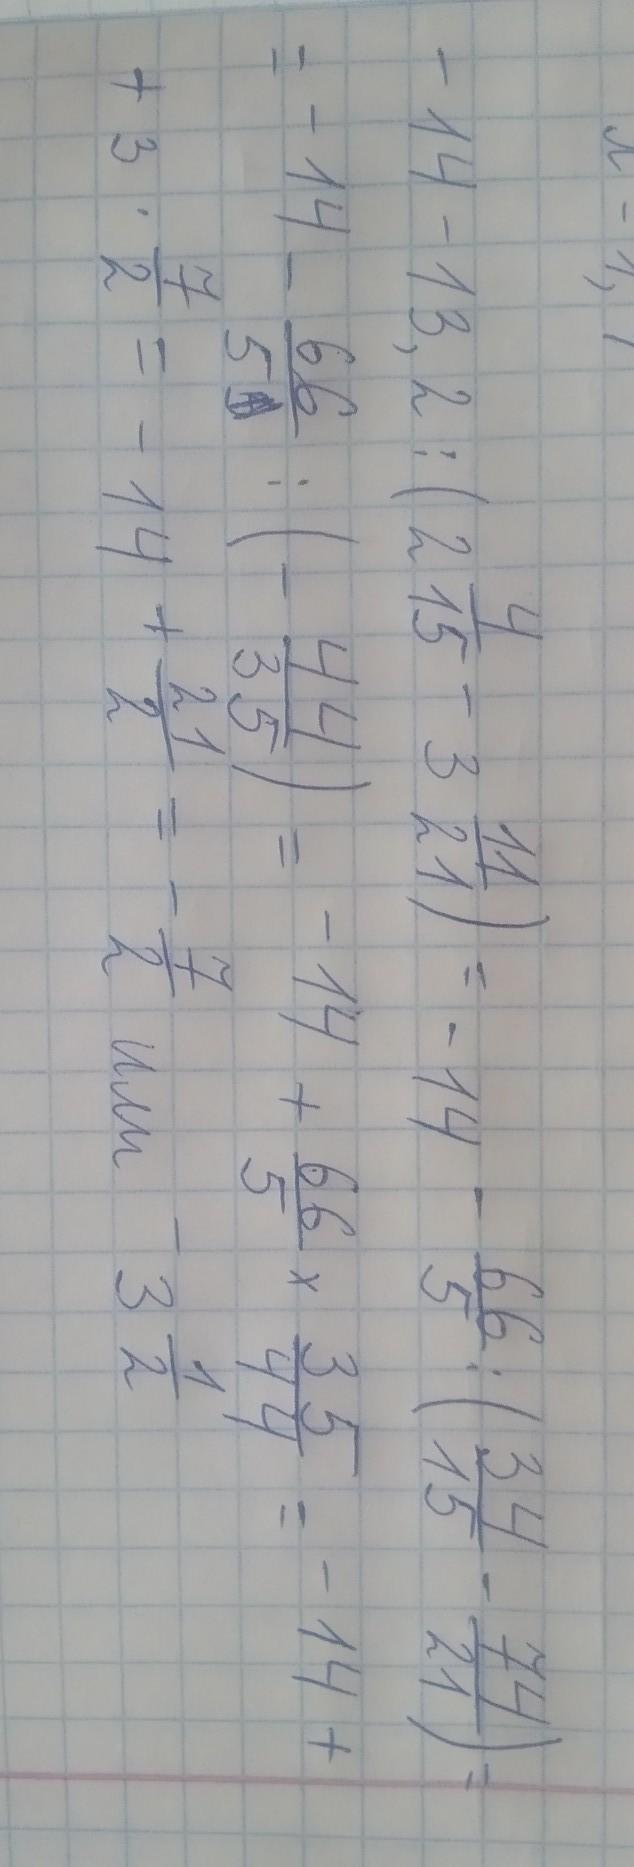 х - 1,
- 14 - 13,2 : (2 4/15 - 3 11/21) = - 14 - 66/5 : (34/15 - 74/21) =
= - 14 - 66/5 : (- 44/35) = - 14 + 66/5 × 35/44 = - 14 +
+ 3 · 7/2 = - 14 + 21/2 = - 7/2 или - 3 1/2